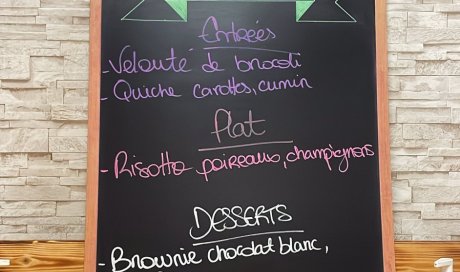 Entrées
- Velouté de brocoli
- Quiche carottes, cumin
Plat
- Risotto poireaux, champignons
DESSERTS
- Brownie chocolat blanc,